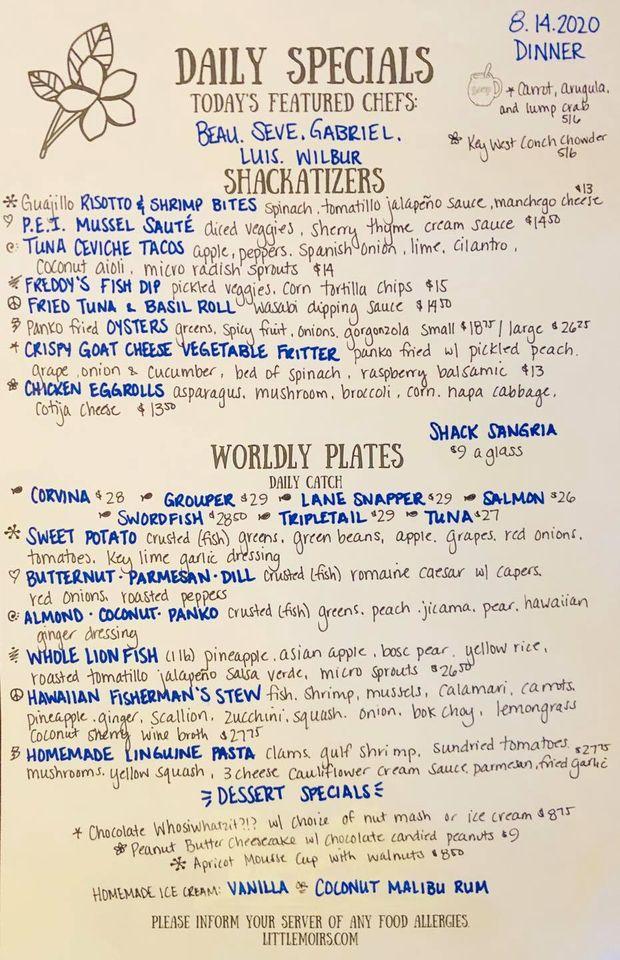 8.14.2020
DINNER
DAILY SPECIALS
TODAY'S FEATURED CHEFS:
BEAU. SEVE. GABRIEL.
LUIS. WILBUR
Soup
* Carrot, arugula,
and lump crab
5/6
Key West Conch Chowder
5/6
SHACKATIZERS
Guajillo RISOTTO & SHRIMP BITES spinach, tomatillo jalapeño sauce, manchego cheese $13
P.E.I. MUSSEL SAUTÉ diced veggies, sherry thyme cream sauce $14.50
TUNA CEVICHE TACOS apple, peppers, Spanish onion, lime, cilantro,
coconut aioli, micro radish sprouts $14
FREDDY'S FISH DIP pickled veggies, corn tortilla chips $15
FRIED TUNA & BASIL ROLL wasabi dipping sauce $14.50
Panko fried OYSTERS greens, spicy fruit, onions, gorgonzola small $18.75 / large $26.25
* CRISPY GOAT CHEESE VEGETABLE FRITTER panko fried w/ pickled peach.
grape, onion & cucumber, bed of spinach, raspberry balsamic $13
CHICKEN EGGROLLS asparagus, mushroom, broccoli, corn, napa cabbage,
cotija cheese $13.50
SHACK SANGRIA
$9 a glass
WORLDLY PLATES
DAILY CATCH
CORVINA $28 GROUPER $29 LANE SNAPPER $29 SALMON $26
SWORDFISH $28.50 TRIPLETAIL $29 TUNA $27
SWEET POTATO crusted (fish) greens, green beans, apple, grapes, red onions,
tomatoes, key lime garlic dressing
BUTTERNUT · PARMESAN · DILL crusted (fish) romaine caesar w/ capers,
red onions, roasted peppers
ALMOND · COCONUT · PANKO crusted (fish) greens, peach, jicama, pear, hawaiian
ginger dressing
WHOLE LIONFISH (1 lb) pineapple, asian apple, bosc pear, yellow rice,
roasted tomatillo jalapeño salsa verde, micro sprouts $26.50
HAWAIIAN FISHERMAN'S STEW fish, shrimp, mussels, calamari, carrots,
pineapple, ginger, scallion, zucchini, squash, onion, bok choy, lemongrass
coconut sherry wine broth $27.75
HOMEMADE LINGUINE PASTA clams, gulf shrimp, sundried tomatoes, $27.75
mushrooms, yellow squash, 3 cheese cauliflower cream sauce, parmesan, fried garlic
DESSERT SPECIALS
* Chocolate Whosiwhatzit?!? w/ choice of nut mash or ice cream $8.75
Peanut Butter Cheesecake w/ chocolate candied peanuts $9
Apricot Mousse Cup with walnuts $8.50
HOMEMADE ICE CREAM: VANILLA or COCONUT MALIBU RUM
PLEASE INFORM YOUR SERVER OF ANY FOOD ALLERGIES.
LITTLEMOIRS.COM